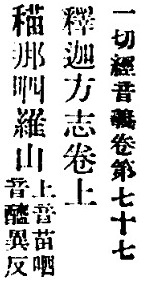 一切經音義卷第七十七
釋迦方志卷上
䅦那呬羅山上音苗呬
音醯異反